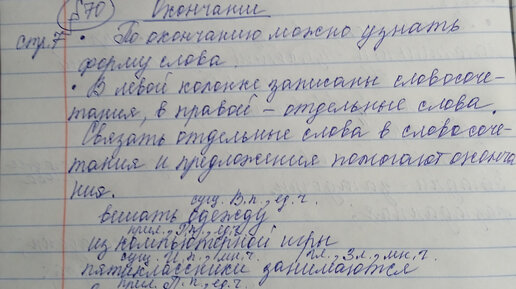 §70 Окончание
стр.7
• По окончанию можно узнать
форму слова.
• В левой колонке записаны словосоче-
тания, в правой – отдельные слова.
Связать отдельные слова в словосоче-
тания и предложения помогают оконча
ния.
сущ. В.п., ед.ч.
вешать одежду
прил., Р.п., ед.ч.
из компьютерной игры
сущ. И.п., мн.ч. гл., 3л., мн.ч.
пятиклассники занимаются
прил. П.п., ед.ч.